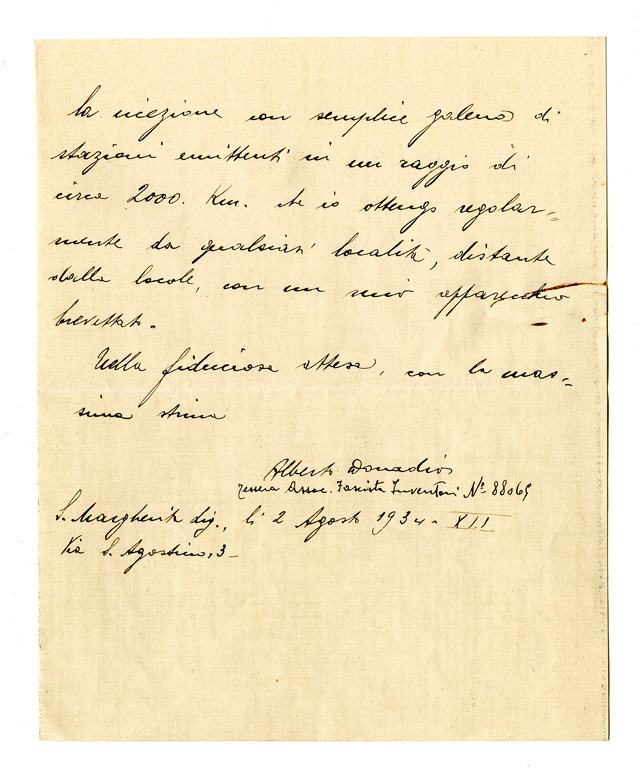 la ricezione con semplice galena di
stazioni emittenti in un raggio di
circa 2000. Km. che io ottengo regolar-
mente da qualsiasi località, distante
dalla locale, con un mio apparecchio
brevettato.
Nella fiduciosa attesa, con la mas-
sima stima
Alberto Donadio
Tessera Assoc. Fascista Inventori Nº 88069
S. Margherita Lig., li 2 Agosto 1934 - XII
Via S. Agostino, 3 -